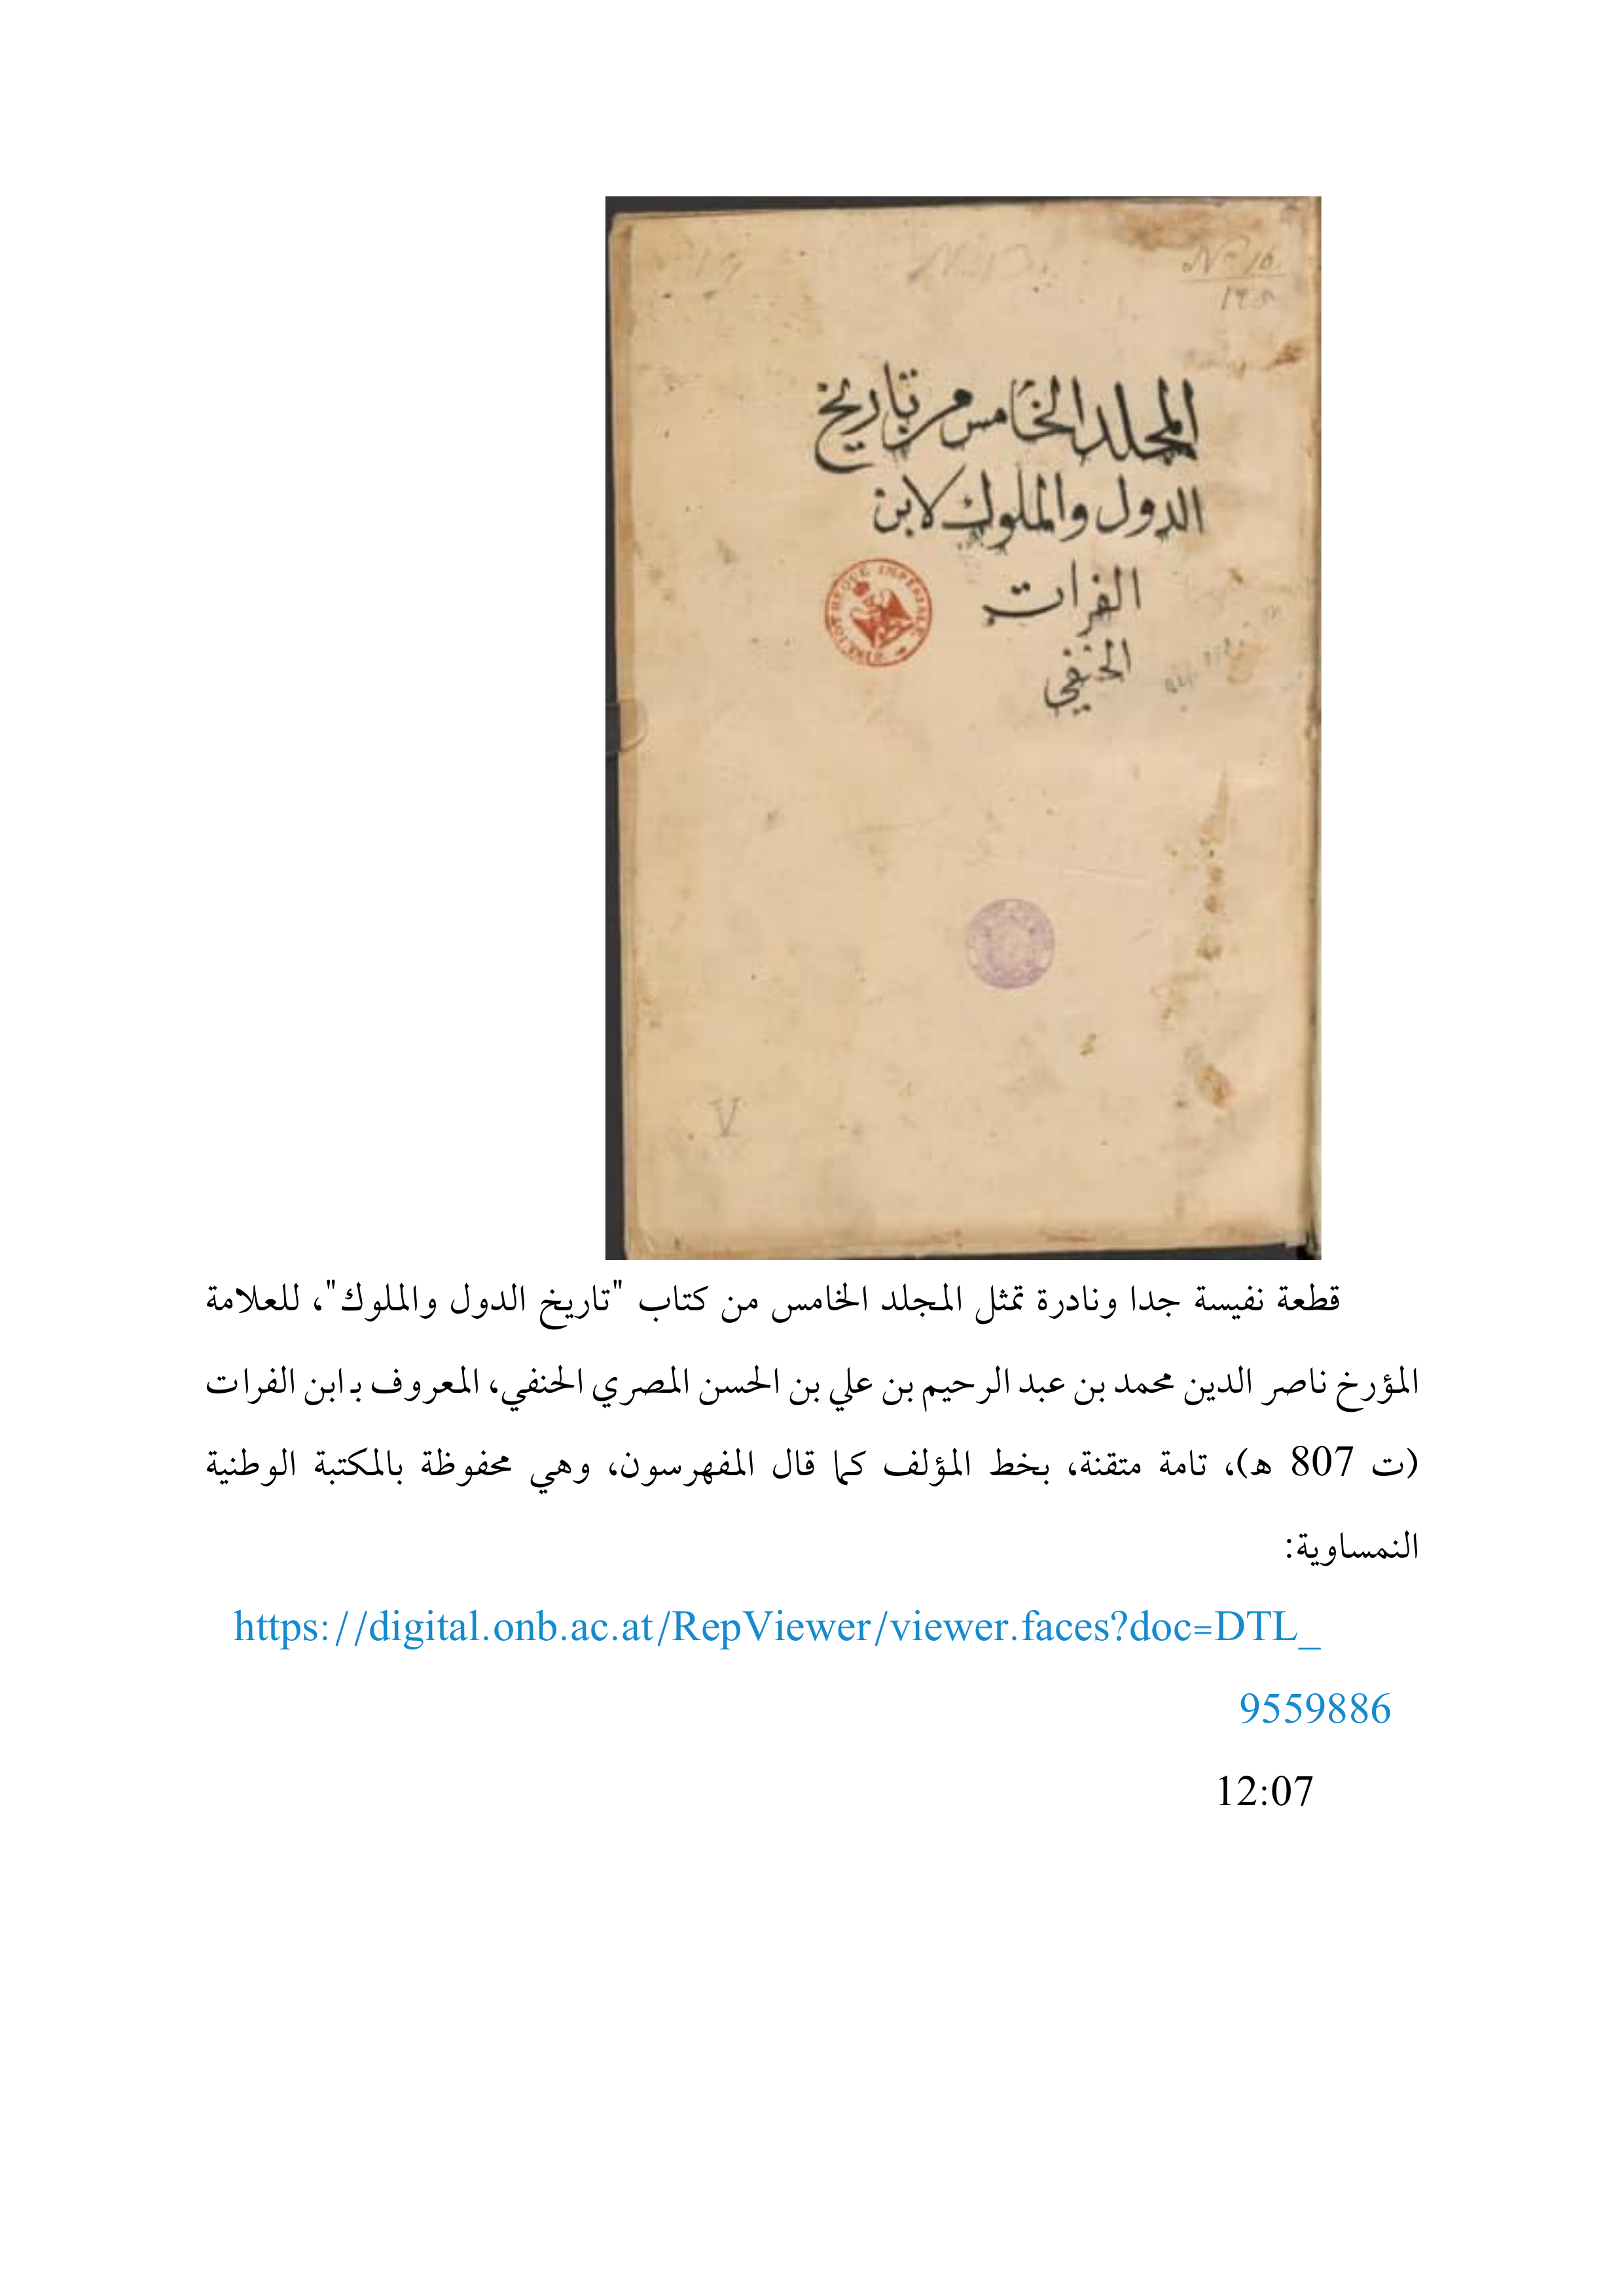 Nº 16.
المجلد الخامس من تاريخ
الدول والملوك لابن
الفرات
الحنفي
BIBLIOTHEQUE IMPERIALE
V
قطعة نفيسة جدا ونادرة تمثل المجلد الخامس من كتاب "تاريخ الدول والملوك"، للعلامة
المؤرخ ناصر الدين محمد بن عبد الرحيم بن علي بن الحسن المصري الحنفي، المعروف بـ ابن الفرات
(ت 807 هـ)، تامة متقنة، بخط المؤلف كما قال المفهرسون، وهي محفوظة بالمكتبة الوطنية
النمساوية:
https://digital.onb.ac.at/RepViewer/viewer.faces?doc=DTL_
9559886
12:07